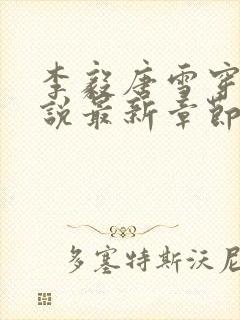 李毅唐雪穿
说最新章节
多塞特斯沃尼